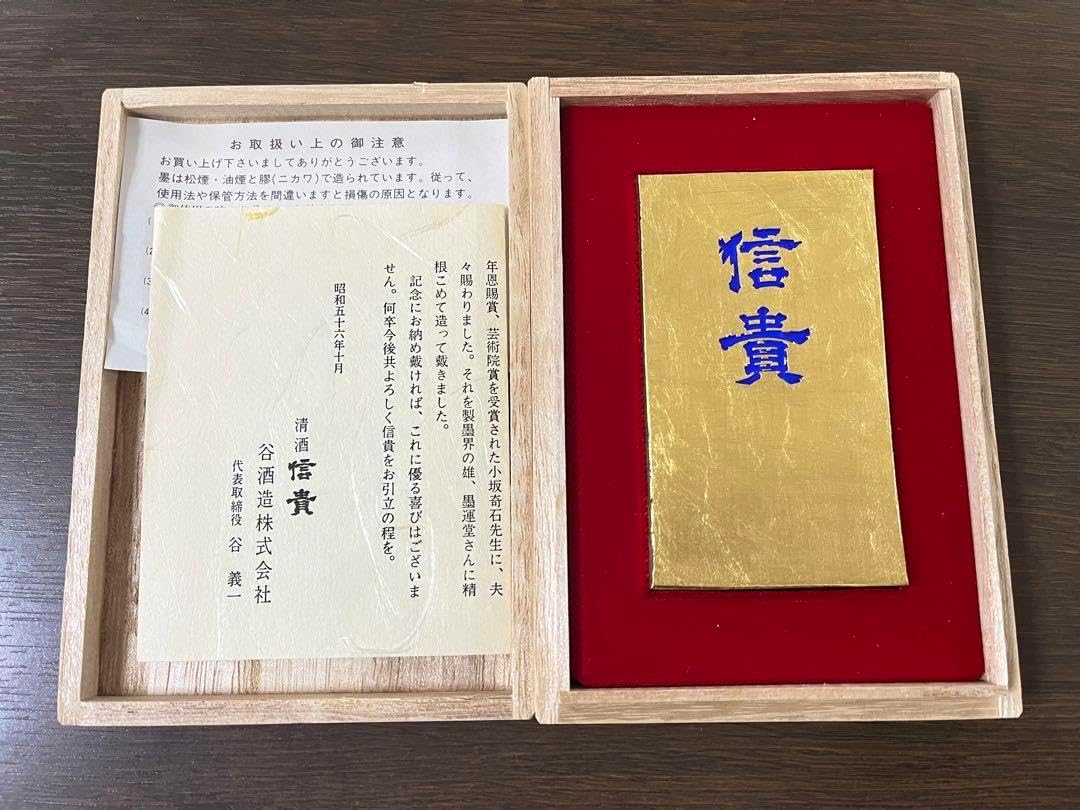 お取扱い上の御注意
お買い上げ下さいましてありがとうございます。
墨は松煙・油煙と膠(ニカワ)で造られています。従って、
使用法や保管方法を間違いますと損傷の原因となります。
(2
(3
(4
年恩賜賞、芸術院賞を受賞された小坂奇石先生に、夫
々賜わりました。それを製墨界の雄、墨運堂さんに精
根こめて造って戴きました。
記念にお納め戴ければ、これに優る喜びはございま
せん。何卒今後共よろしく信貴をお引立の程を。
昭和五十六年十月
清酒 信貴
谷酒造株式会社
代表取締役 谷 義一
信貴